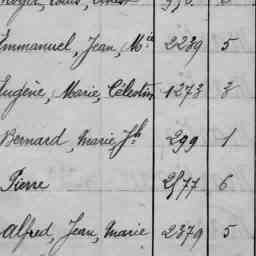 Louis
Emmanuel, Jean, Mie 2239 5
Eugène, Marie, Célestin 1273 3
Bernard, Marie, Jh 299 1
Pierre 2577 6
Alfred, Jean, Marie 2379 5